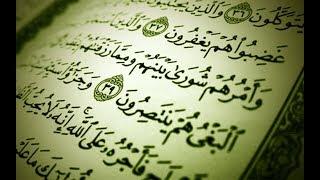 يَتَوَكَّلُونَ ٣٦ وَالَّذِينَ
غَضِبُوا هُمْ يَغْفِرُونَ ٣٧ وَالَّذِينَ
وَأَمْرُهُمْ شُورَىٰ بَيْنَهُمْ وَمِمَّا رَزَقْنَٰهُمْ
ٱلْبَغْىُ هُمْ يَنتَصِرُونَ ٣٩ وَجَزَٰٓؤُا۟
فَأَجْرُهُۥ عَلَى ٱللَّهِ إِنَّهُۥ لَا يُحِبُّ